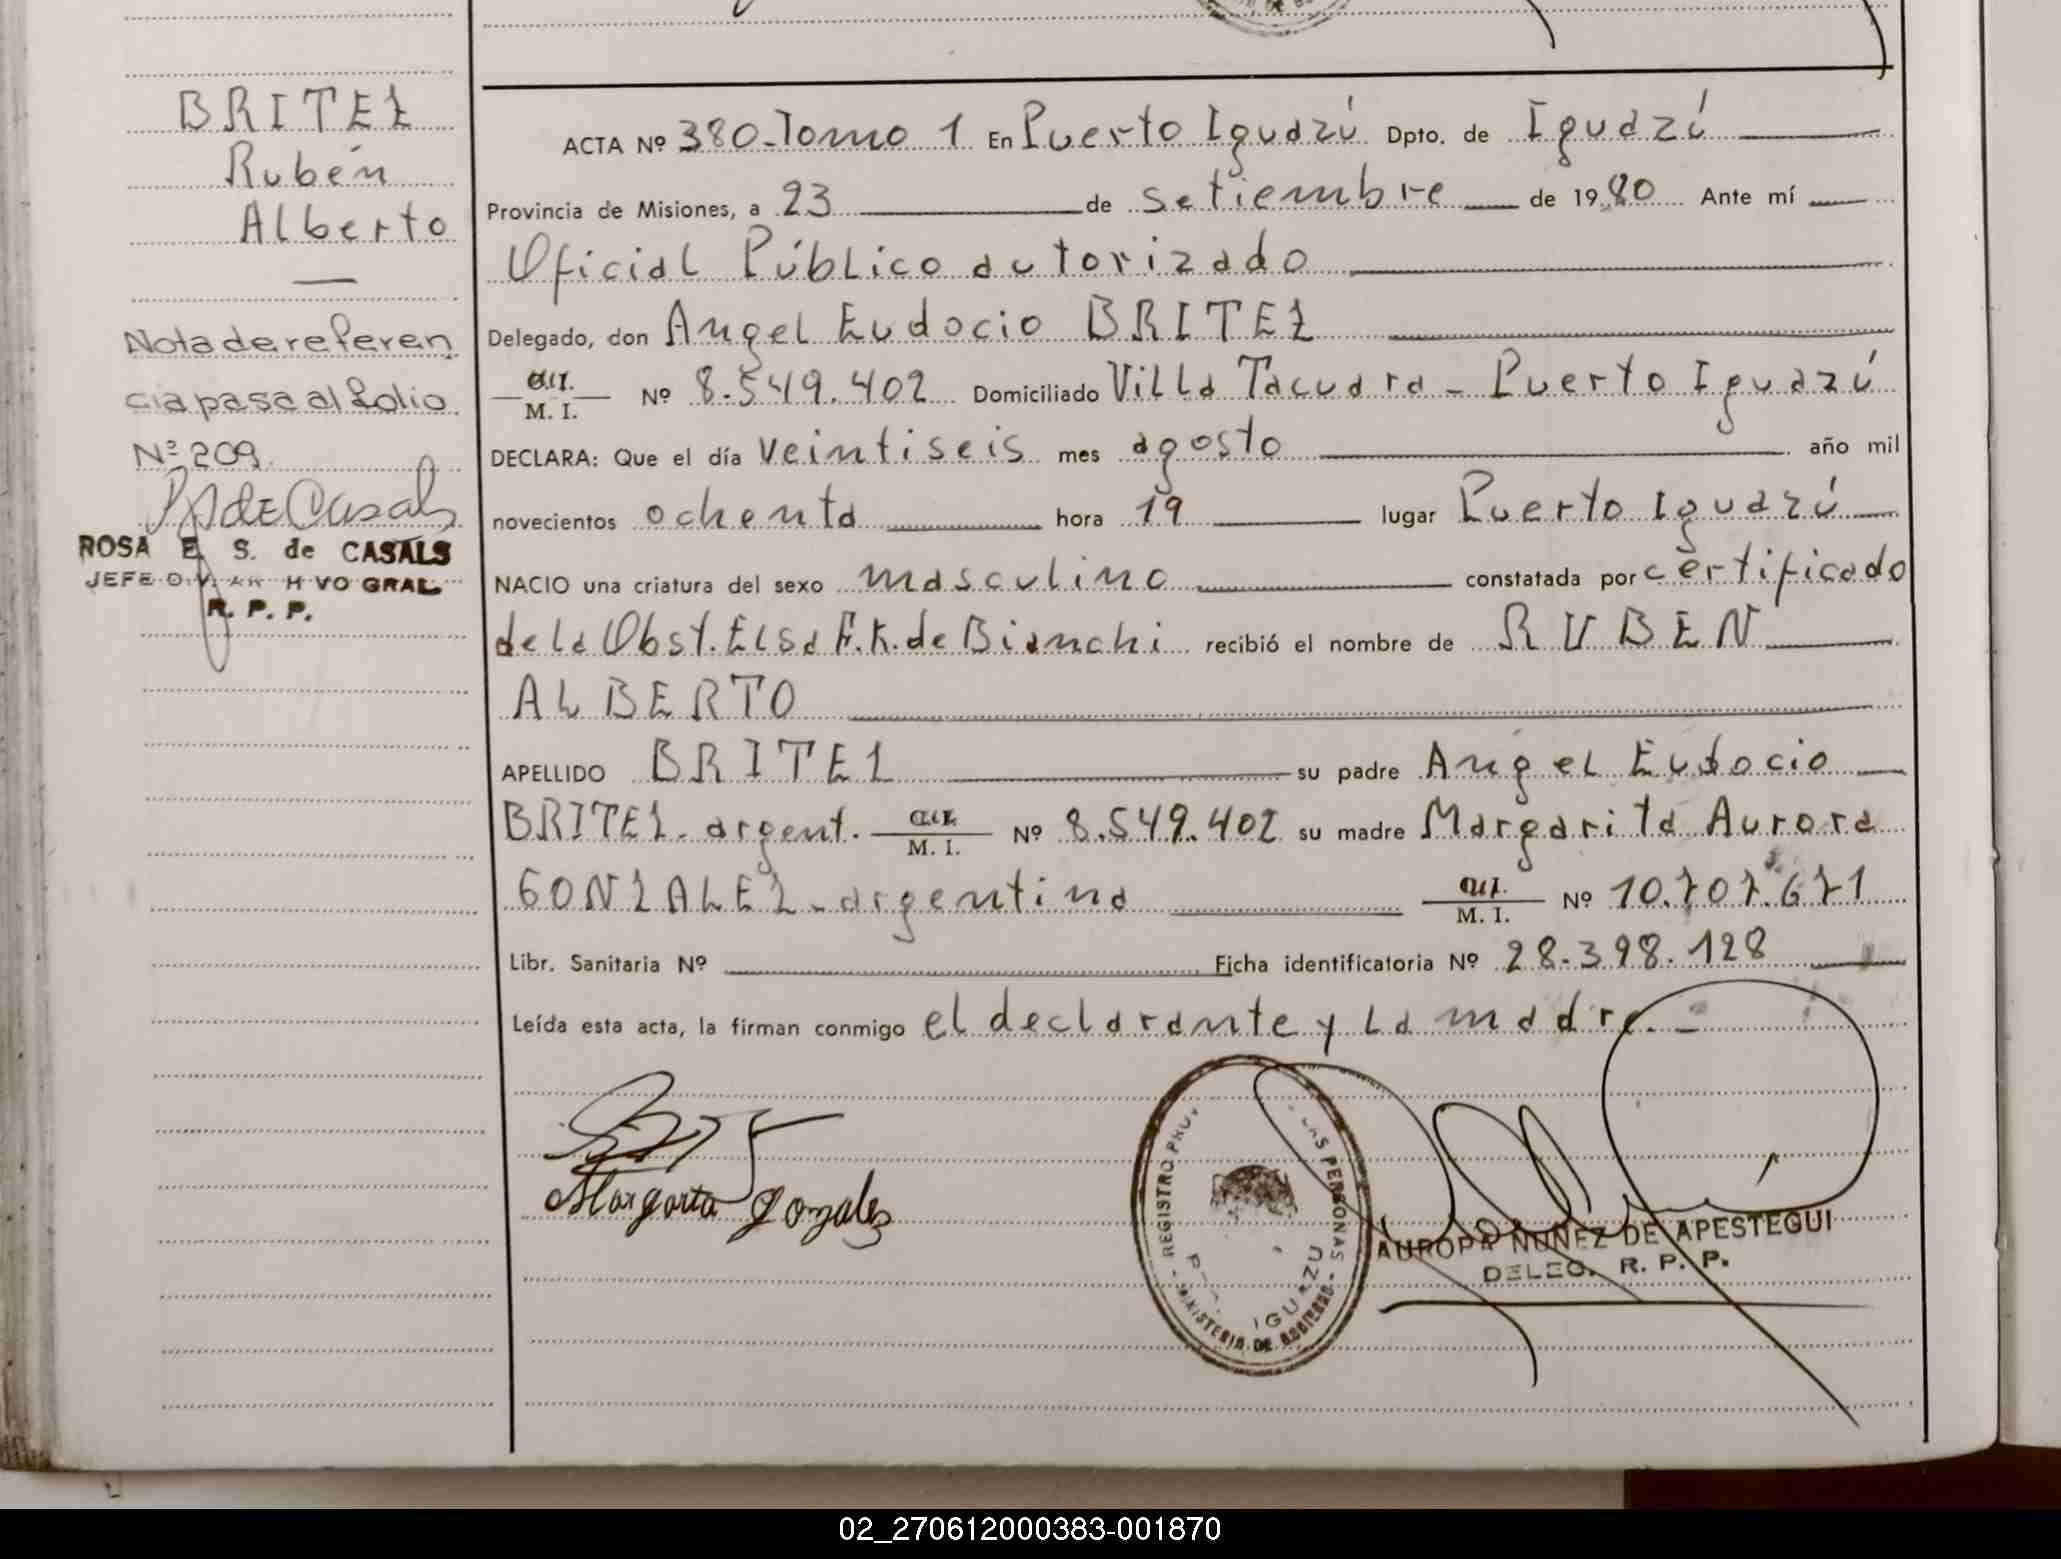 BRITEZ
Rubén
Alberto
Nota de referen
cia pasa al folio
Nº 209
R S de Casals
ROSA E. S. de CASALS
JEFE DIV. ARCHIVO GRAL
R. P. P.
ACTA Nº 380-Tomo 1 En Puerto Iguazú Dpto. de Iguazú
Provincia de Misiones, a 23 de setiembre de 1980 Ante mí
Oficial Público autorizado
Delegado, don Angel Eudocio BRITEZ
M. I. Nº 8.549.402 Domiciliado Villa Tacuara - Puerto Iguazú
DECLARA: Que el día veintiseis mes agosto año mil
novecientos ochenta hora 19 lugar Puerto Iguazú
NACIO una criatura del sexo masculino constatada por certificado
de la Obst. Elsa F. K. de Bianchi recibió el nombre de RUBEN
ALBERTO
APELLIDO BRITEZ su padre Angel Eudocio
BRITEZ - argent. M. I. Nº 8.549.402 su madre Margarita Aurora
GONZALEZ - argentina M. I. Nº 10.707.671
Libr. Sanitaria Nº Ficha identificatoria Nº 28.398.128
Leída esta acta, la firman conmigo el declarante y la madre. -
Margarita Gonzales
REGISTRO PROV. LAS PERSONAS
IGUAZU
- MINISTERIO DE GOBIERNO -
AURORA NUÑEZ DE APESTEGUI
DELEG. R. P. P.
02_270612000383-001870